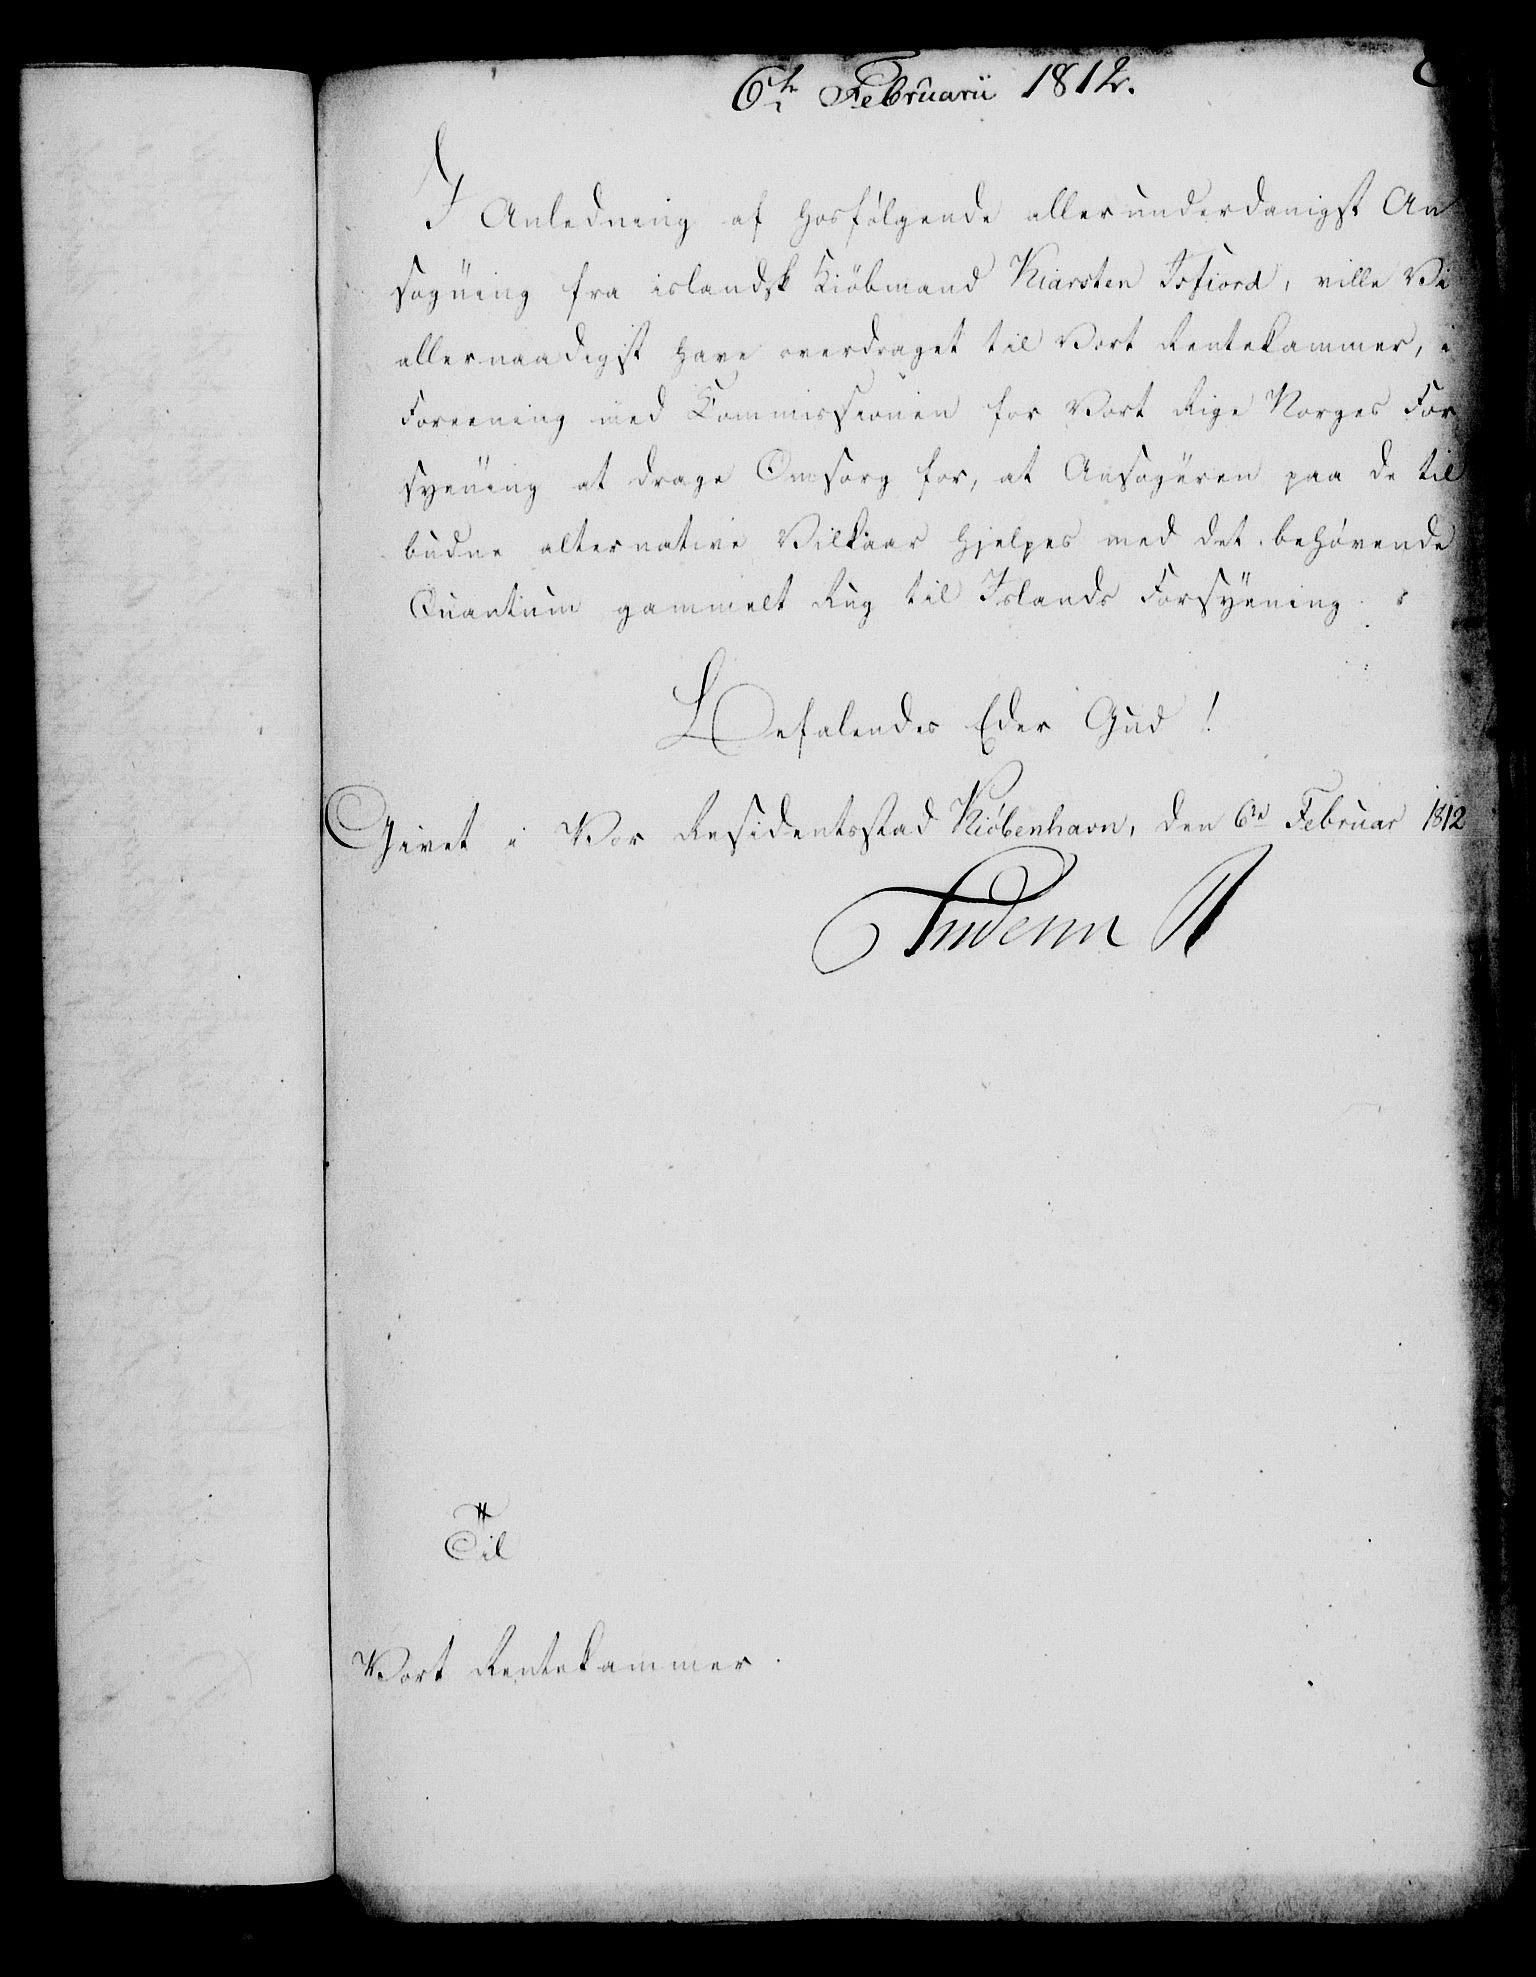 6te Februarii 1812.
I Anledning af hosfølgende allerunderdanigst An
søgning fra islandsk Kiöbmand Kiarsten Isfiord, ville Vi
allernaadigst have overdraget til Vort Rentekammer, i
Foreening med Commissionen for Vort Rige Norges For
syening at drage Omsorg for, at Ansøgeren paa de til
budne alternative Vilkaar hjelpes med det behøvende
Quantum gammelt Rug til Islands Forsyening.
Befalendes Eder Gud!
Givet i Vor Residentsstad Kiöbenhavn, den 6te Februar 1812
Friderich R
Til
Vort Rentekammer.